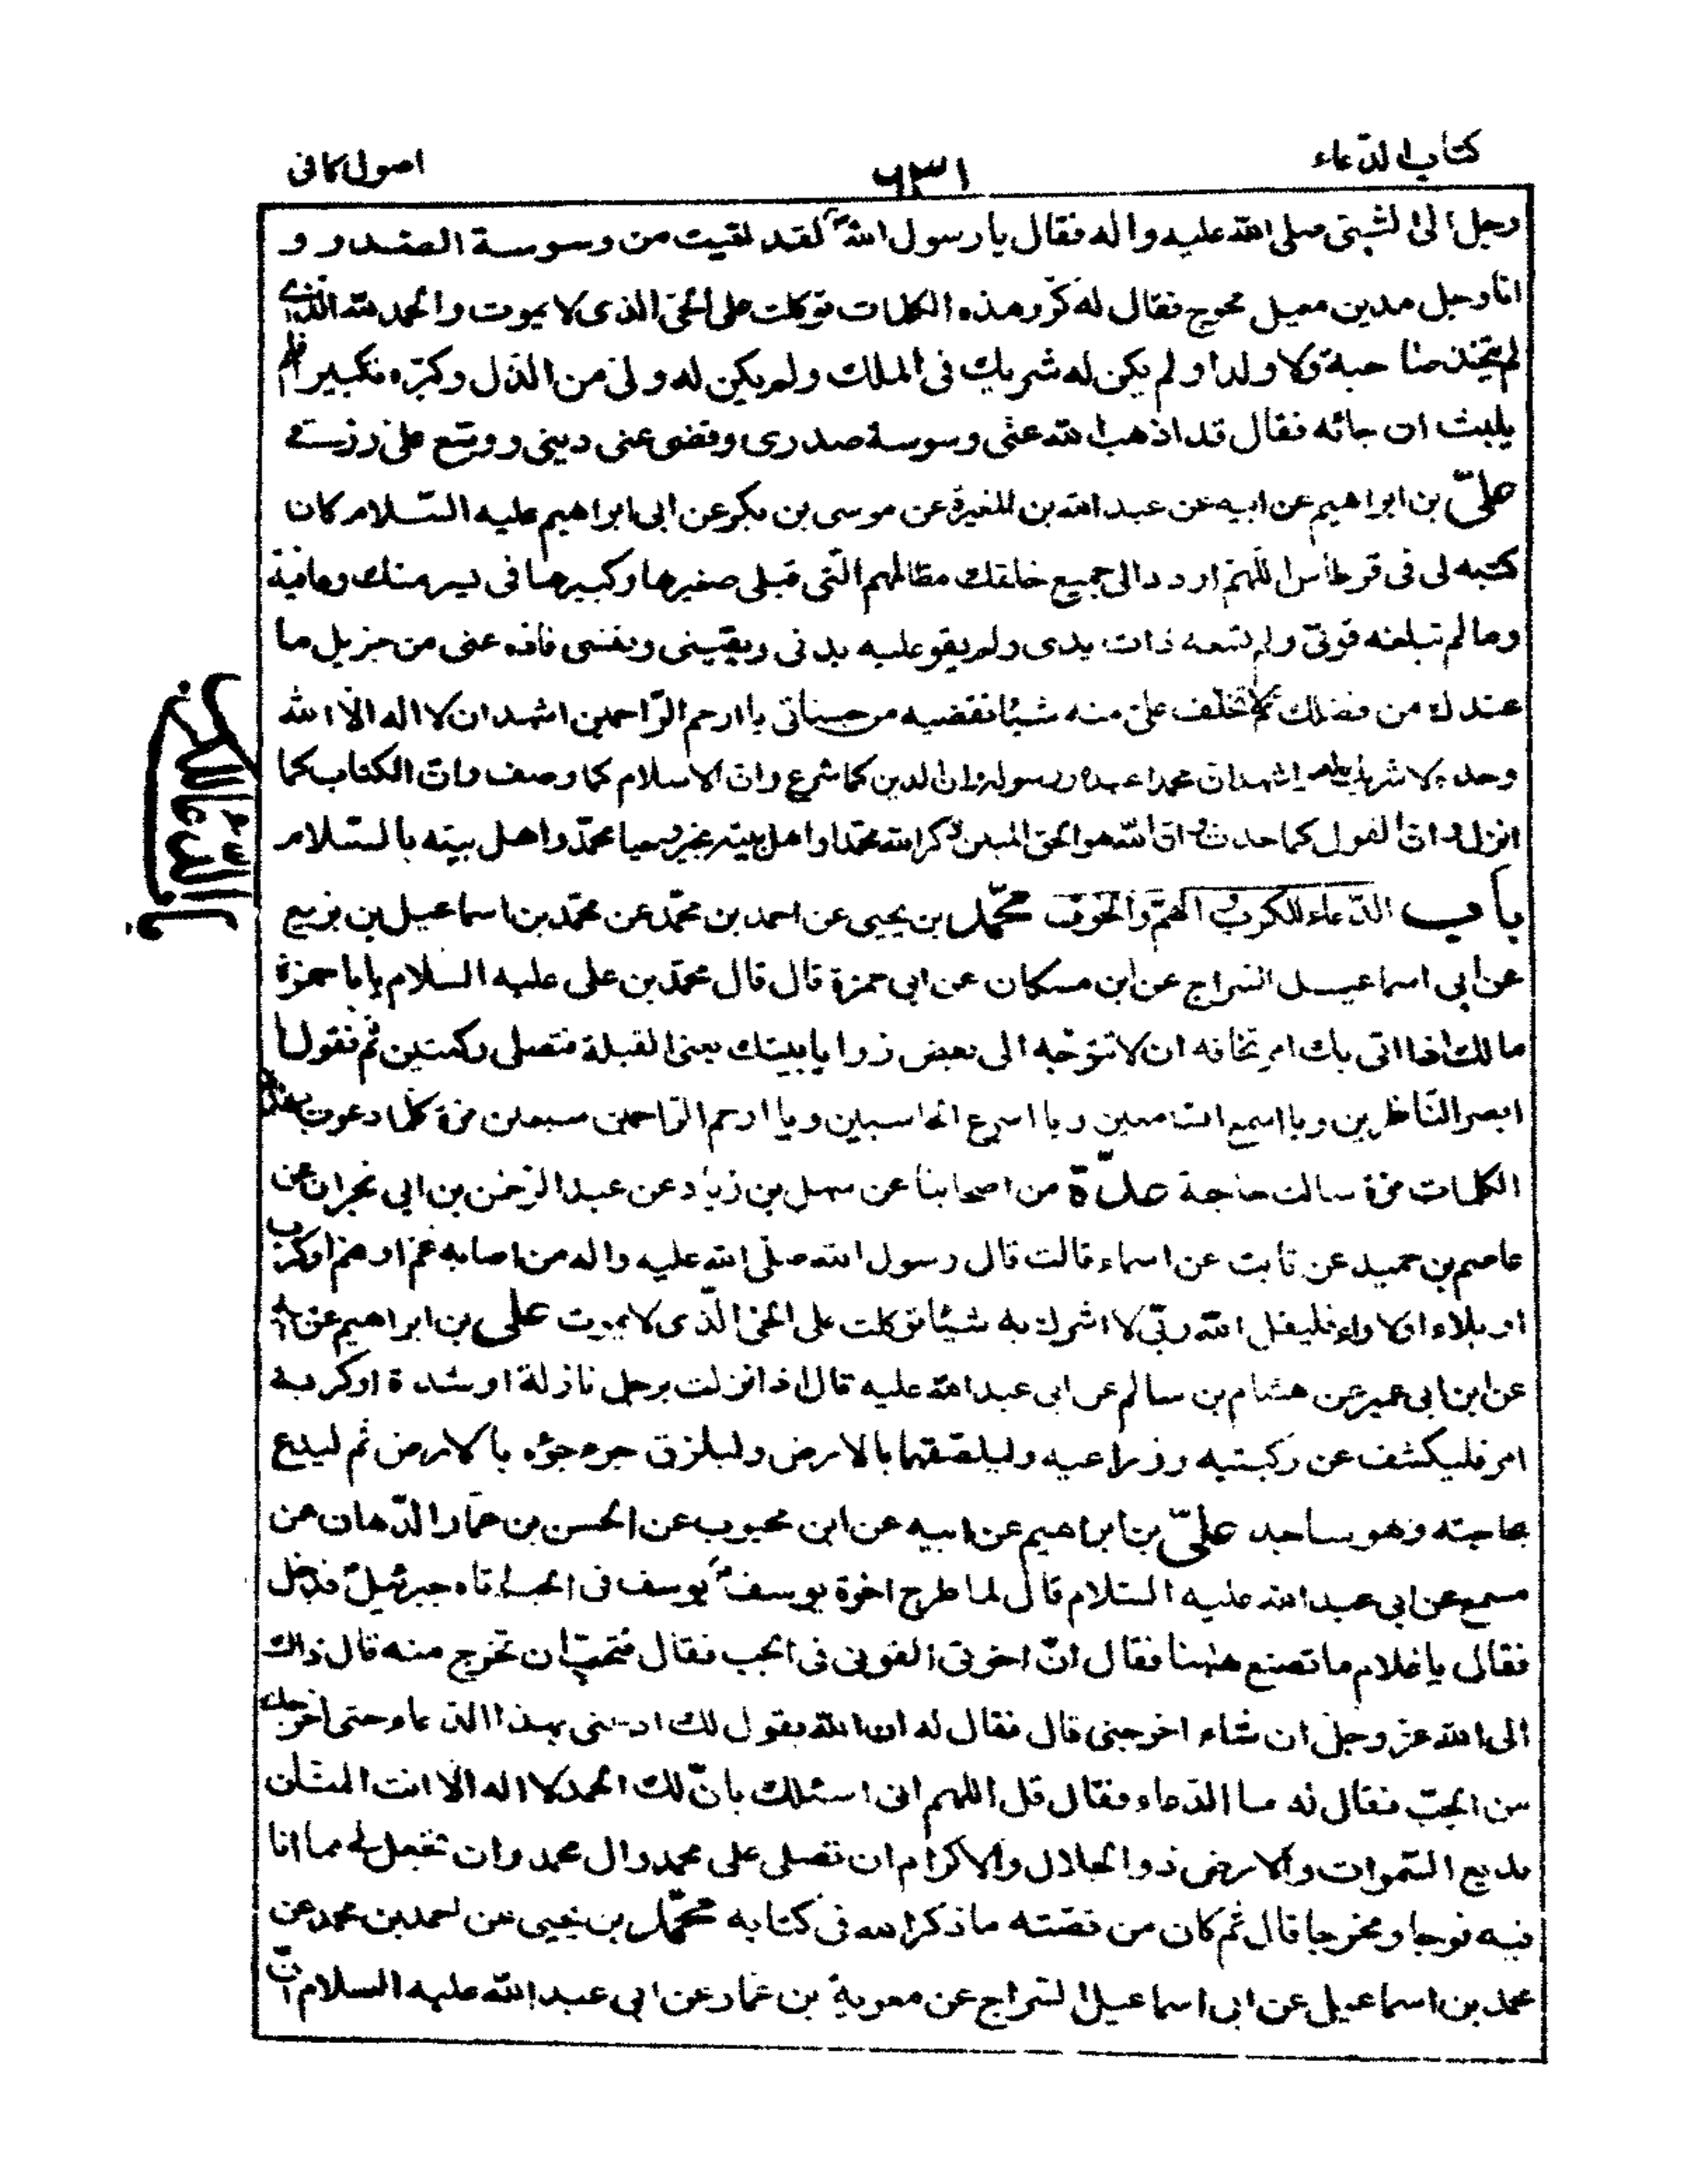 كتاب الدّعاء
٦٣١
اصول كافى
رجل الى النّبىّ صلى الله عليه واله فقال يا رسول اللهؐ لقد لقيت من وسوسة الصّدر و
انا رجل مدين معيل محوج فقال له كرّر هذه الكلمات توكلت على الحىّ الذى لا يموت والحمد لله الذى
لم يتّخذ صاحبة ولا ولدا ولم يكن له شريك فى الملك ولم يكن له ولى من الذّل وكبّره تكبيرا فلم
يلبث ان جائه فقال قد اذهب الله عنّى وسوسة صدرى وقضى عنى دينى ووسّع علىّ رزقى
علىّ بن ابراهيم عن ابيه عن عبد الله بن المغيرة عن موسى بن بكر عن ابى ابراهيم عليه السّلام كان
كتبه لى فى قرطاس اللّهمّ اردد الى جميع خلقك مظالمهم الّتى قبلى صغيرها وكبيرها فى يسر منك وعافية
وما لم تبلغه قوتى ولم تسعه ذات يدى ولم يقو عليه بدنى ويقينى ونفسى فادّه عنى من جزيل ما
عندك من فضلك ثم لا تخلف علىّ منه شيئا تقضيه من حسناتى يا ارحم الرّاحمين اشهد ان لا اله الّا الله
وحده لا شريك له واشهد ان محمدا عبده ورسوله وان الدين كما شرع وانّ الاسلام كما وصف وانّ الكتاب كما
انزل وانّ القول كما حدث وانّ الله هو الحق المبين ذكر الله محمّدا واهل بيته بخير وحيا محمّد واهل بيته بالسّلام
باب الدّعاء للكرب والهمّ والخوف محمّد بن يحيى عن احمد بن محمّد عن محمّد بن اسماعيل بن بزيع
عن ابى اسماعيل السّراج عن ابن مسكان عن ابى حمزة قال قال محمّد بن على عليه السلام يا با حمزة
ما لك اذا اتى بك امر تخافه ان لا تتوجّه الى بعض زوايا بيتك يعنى القبلة فتصلى ركعتين ثم تقول يا
ابصر النّاظرين ويا اسمع السّامعين ويا اسرع الحاسبين ويا ارحم الرّاحمين سبعين مرّة كلّما دعوت بهذه
الكلمات مرّة سالت حاجة عدّة من اصحابنا عن سهل بن زياد عن عبد الرّحمن بن ابى نجران عن
عاصم بن حميد عن ثابت عن اسماء قالت قال رسول الله صلّى الله عليه واله من اصابه غم او هم او كرب
او بلاء او لاواء فليقل الله ربّى لا اشرك به شيئا توكلت على الحىّ الّذى لا يموت على بن ابراهيم عن ابيه
عن ابن ابى عمير عن هشام بن سالم عن ابى عبد الله عليه قال اذا نزلت برجل نازلة او شدة او كربه
امر فليكشف عن ركبتيه وذراعيه وليلصقهما بالارض وليلزق جوءجؤه بالارض ثم ليدع
بحاجته وهو ساجد علىّ بن ابراهيم عن ابيه عن ابن محبوب عن الحسن بن عمّار الدّهان عن
مسمع عن ابى عبد الله عليه السّلام قال لما طرح اخوة يوسفؑ يوسف فى الجب اتاه جبرئيلؑ فدخل
فقال يا غلام ما تصنع ههنا فقال انّ اخوتى القونى فى الجب فقال فتحبّ ان تخرج منه قال ذاك
الى الله عزّ وجلّ ان شاء اخرجنى قال فقال له ان الله يقول لك ادعنى بهذا الدّعاء حتى اخرجك
من الجبّ فقال له ما الدّعاء فقال قل اللهم انى اسئلك بانّ لك الحمد لا اله الّا انت المنّان
بديع السّموات والارض ذو الجلال والاكرام ان تصلى على محمد وال محمد وان تجعل لى مما انا
فيه فرجا ومخرجا قال ثم كان من قصّته ما ذكر الله فى كتابه محمّد بن يحيى عن احمد بن محمد عن
محمد بن اسماعيل عن ابى اسماعيل السّراج عن معوية بن عمّار عن ابى عبد الله عليه السلام انّ